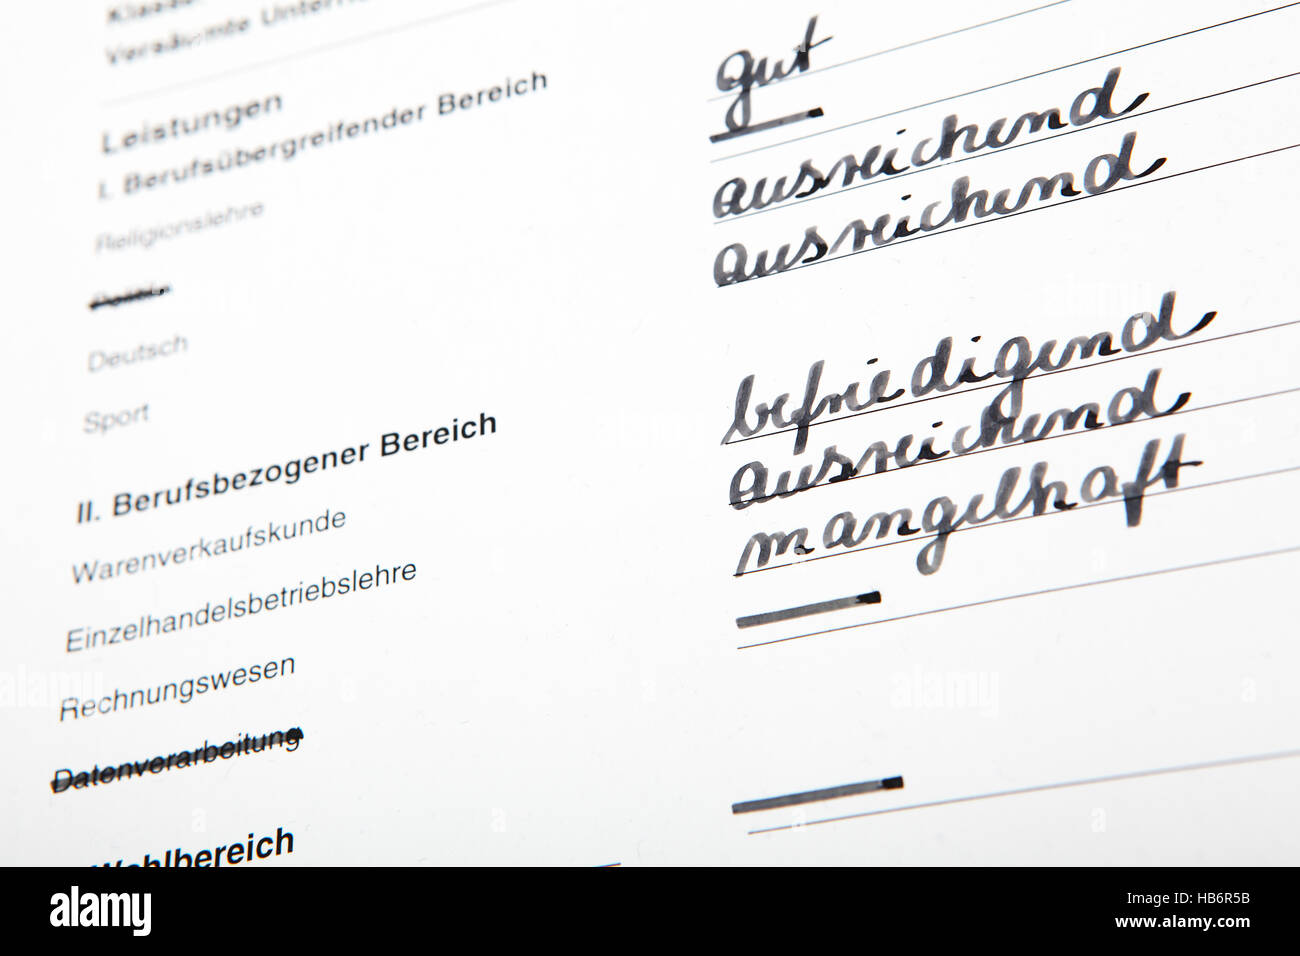 Klasse
Versäumte Untern
Leistungen
I. Berufsübergreifender Bereich
Religionslehre gut
Politik
Deutsch ausreichend
Sport ausreichend
II. Berufsbezogener Bereich
Warenverkaufskunde befriedigend
Einzelhandelsbetriebslehre ausreichend
Rechnungswesen mangelhaft
Datenverarbeitung
Wahlbereich
alamy
Image ID: HB6R5B
www.alamy.com